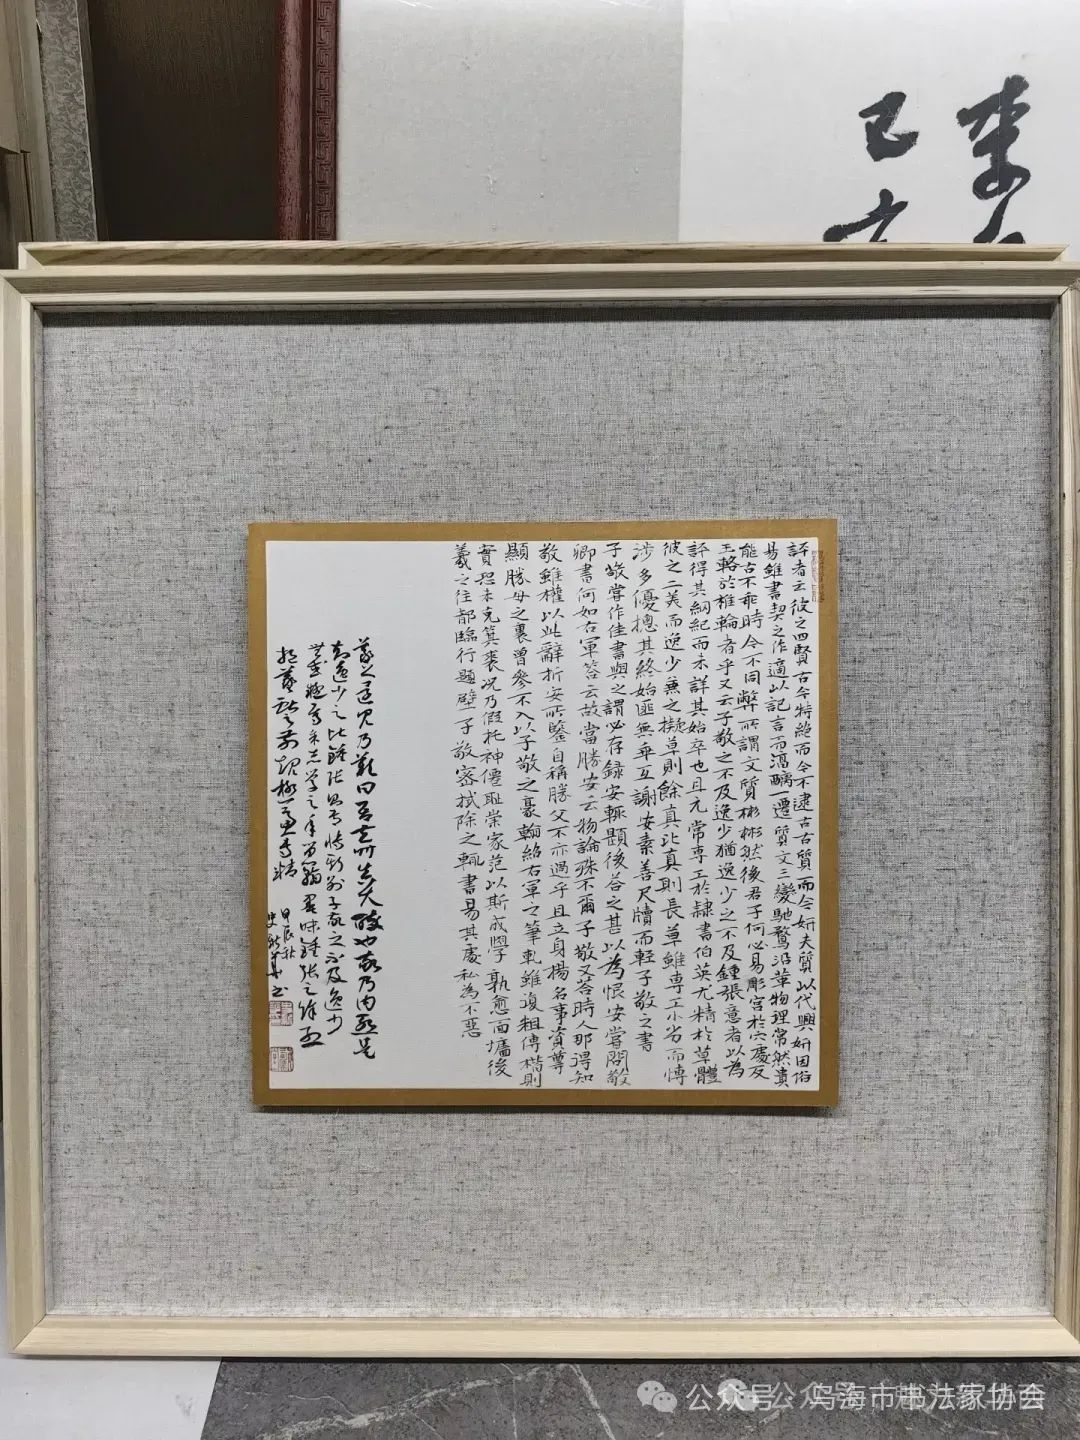 評者云彼之四賢古今特絶而今不逮古古質而今妍夫質以代興妍因俗
易雖書契之作適以記言而淳醨一遷質文三變馳騖沿革物理常然貴
能古不乖時今不同弊所謂文質彬彬然後君子何必易彫宮於穴處反
玉輅於椎輪者乎又云子敬之不及逸少猶逸少之不及鍾張意者以為
評得其綱紀而未詳其始卒也且元常專工於隸書伯英尤精於草體
彼之二美而逸少兼之擬草則餘真比真則長草雖専工小劣而博
涉多優摠其終始匪無乖互謝安素善尺牘而輕子敬之書
子敬嘗作佳書與之謂必存録安輒題後答之甚以為恨安嘗問敬
卿書何如右軍答云故當勝安云物論殊不爾子敬又答時人那得知
敬雖權以此辭折安所鑒自稱勝父不亦過乎且立身揚名事資尊
顯勝母之裏曾參不入以子敬之豪翰紹右軍之筆札雖復粗傳楷則
實恐未克箕裘况乃假托神僊恥崇家范以斯成學孰愈面墻後
羲之往都臨行題壁子敬密拭除之輒書易其處私為不惡
羲之還見乃歎曰吾去時真大醉也敬乃內慙是
知逸少之比鍾張則專博斯別子敬之不及逸少
無或疑焉余志學之年留心翰墨味鍾張之餘烈
挹羲獻之前規極慮專精
甲辰秋
公众号 乌海市书法家协会